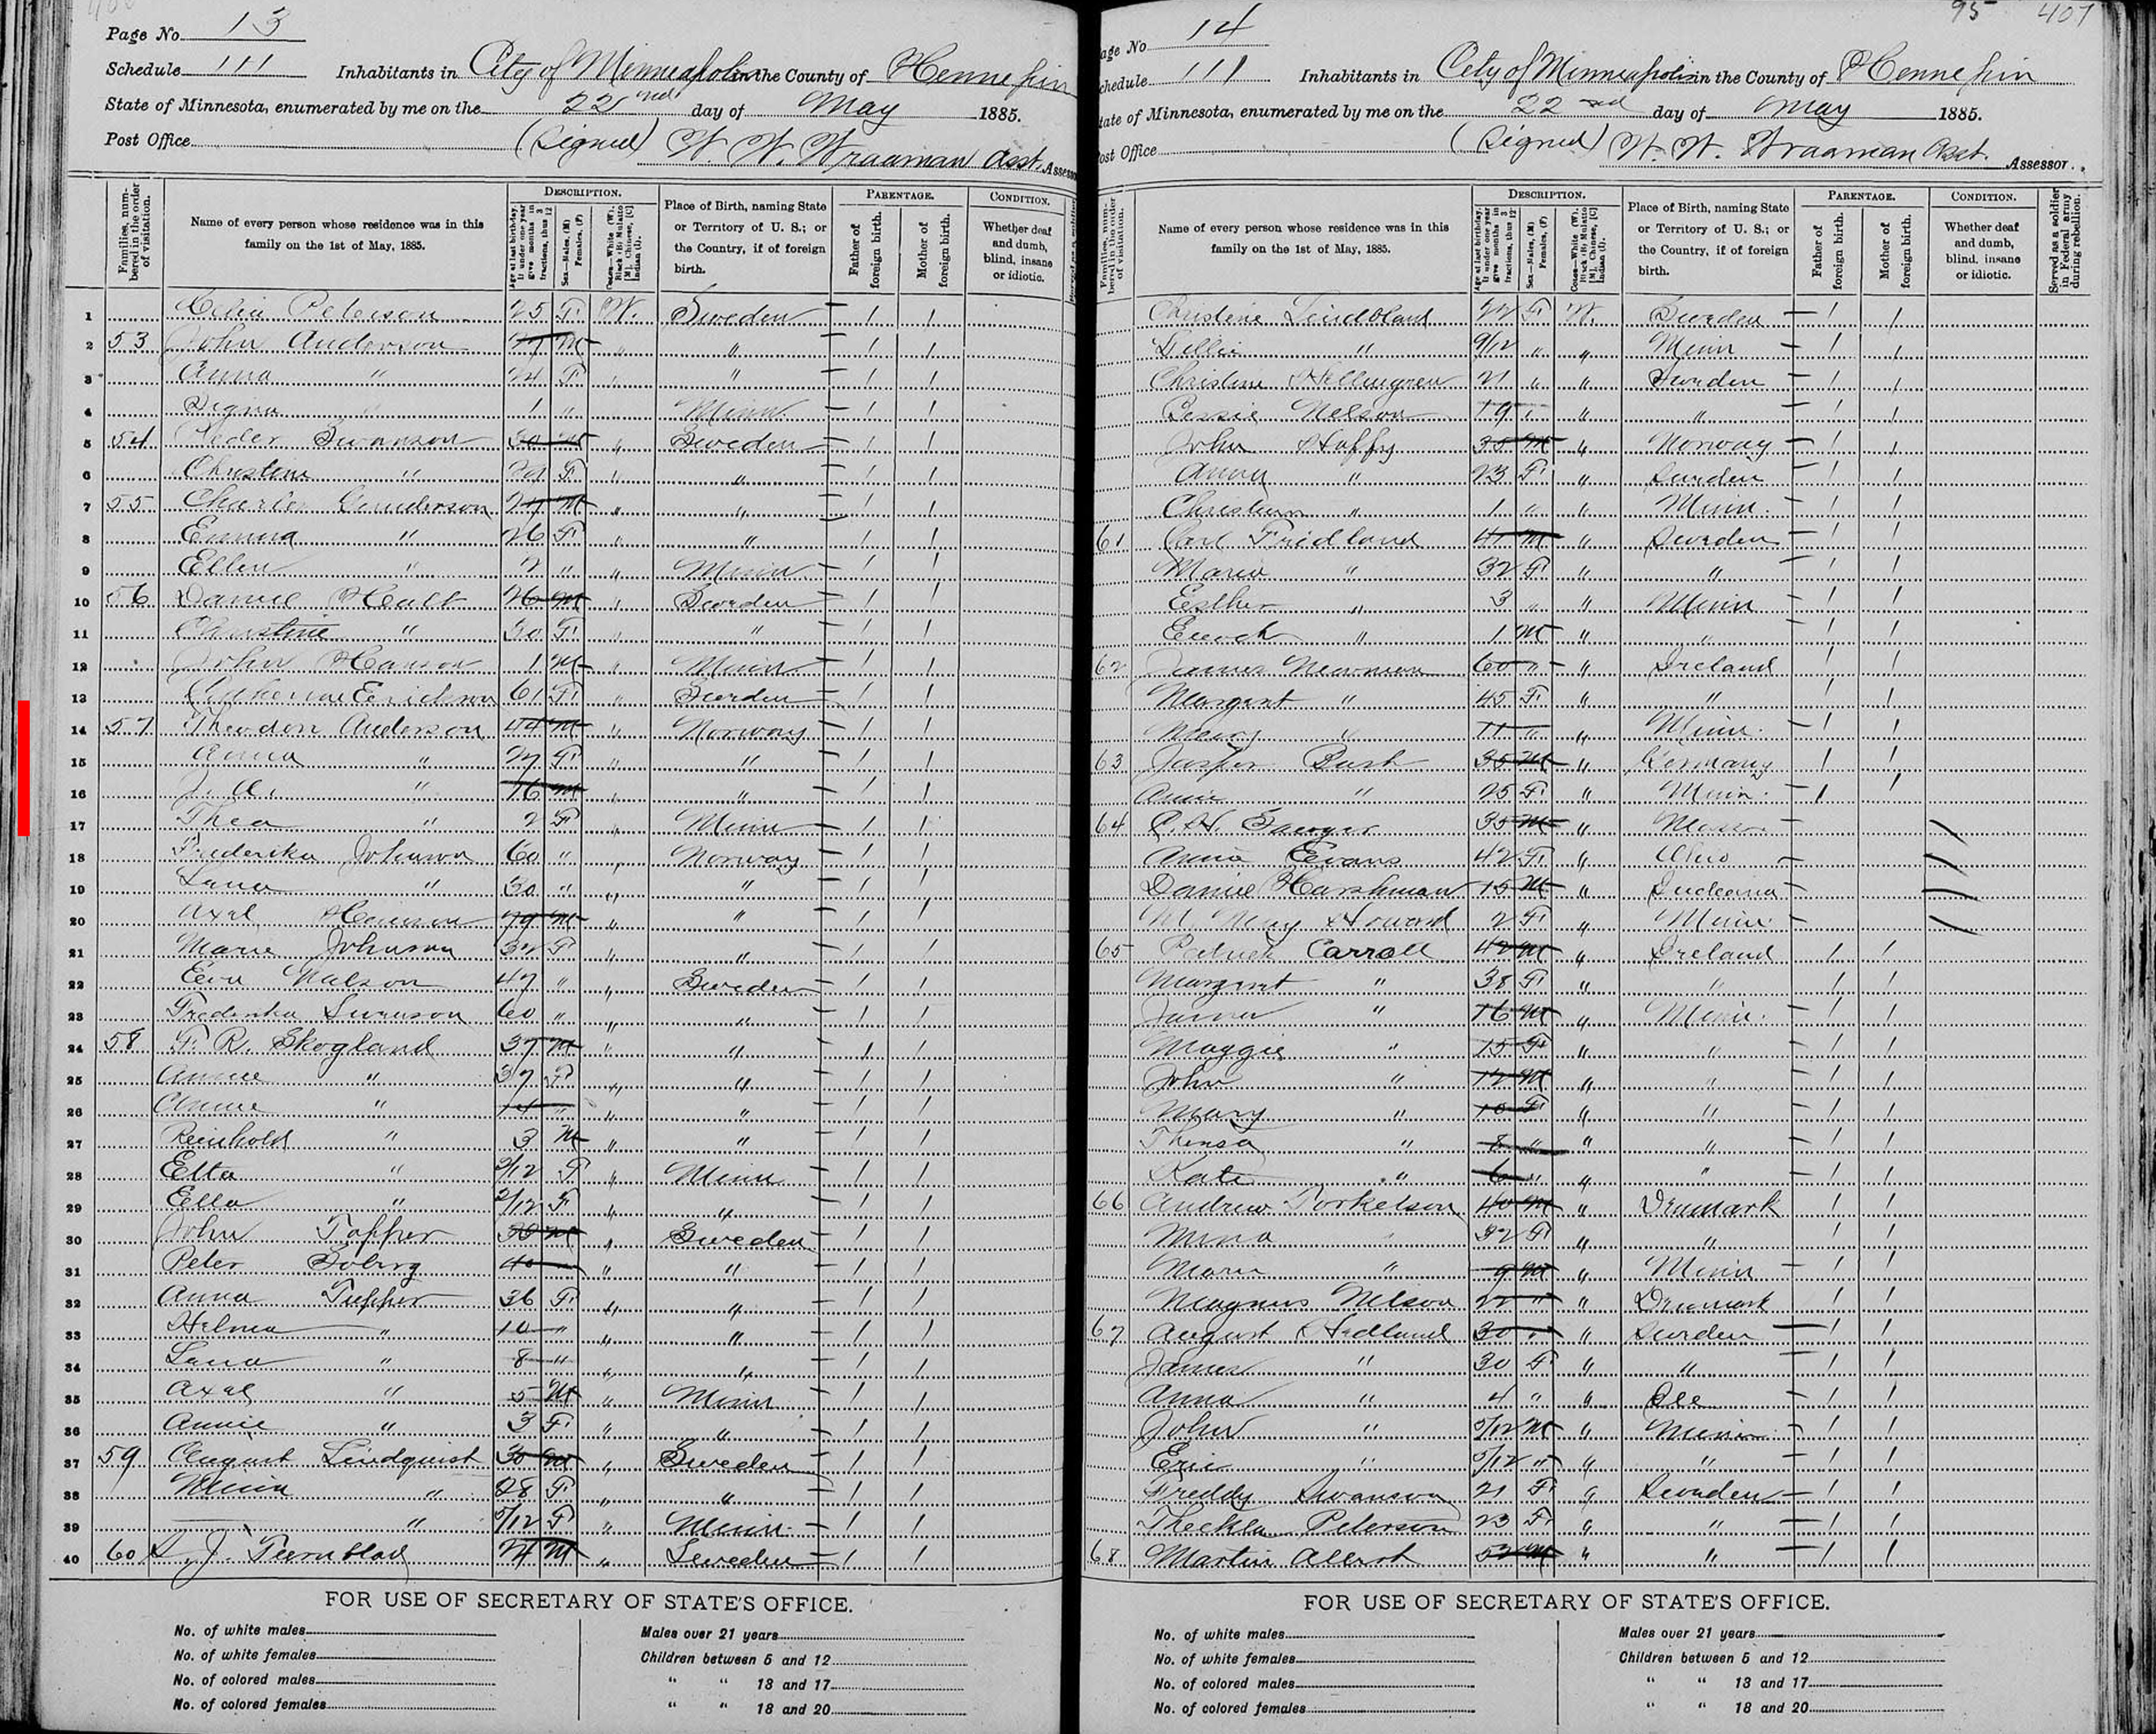 Page No. 13
Schedule 111 Inhabitants in City of Minneapolis in the County of Hennepin
State of Minnesota, enumerated by me on the 22nd day of May 1885.
Post Office (Signed) W. W. Wraaman Asst. Assessor
Families, numbered in the order of visitation.
Name of every person whose residence was in this family on the 1st of May, 1885.
DESCRIPTION.
Place of Birth, naming State or Territory of U. S.; or the Country, if of foreign birth.
PARENTAGE.
Father of foreign birth.
Mother of foreign birth.
CONDITION.
Whether deaf and dumb, blind, insane or idiotic.
1 Peterson 25 F. W. Sweden 1 1
2 53 John Anderson M " " 1 1
3 Anna " 24 F. " " 1 1
4 " 1 " Minn. 1 1
5 54 Peder Swanson 30 M " Sweden 1 1
6 Christine " F. " " 1 1
7 55 Charles Gunderson M " " 1 1
8 Emma " 26 F. " " 1 1
9 Ellen " 2 " " Minn. 1 1
10 56 Daniel 26 M " Sweden 1 1
11 Christine " 30 F. " " 1 1
12 John Hanson 1 M " Minn. 1 1
13 Erickson 61 F. " Sweden 1 1
14 57 Anderson 44 M " Norway 1 1
15 Anna " 27 F. " " 1 1
16 J. A. " 16 M " " 1 1
17 Thea " 2 F " Minn 1 1
18 Frederika Johnson 60 " " Norway 1 1
19 Lena " 30 " " " 1 1
20 Axel Hanson 29 M " " 1 1
21 Marie Johnson 32 F " " 1 1
22 Eva Nelson 47 " " Sweden 1 1
23 Fredrika Swenson 60 " " " 1 1
24 58 F. R. Skogland 37 M " " 1 1
25 Annie " 37 F " " 1 1
26 Annie " 14 " " " 1 1
27 Reinhold " 3 M " " 1 1
28 Etta " 2/12 F " Minn 1 1
29 Ella " 2/12 F " " 1 1
30 John Topper 38 M " Sweden 1 1
31 Peter Soberg 40 " " 1 1
32 Anna Tupper 36 F. " " 1 1
33 Helma " 10 " " " 1 1
34 Lena " 8 " " " 1 1
35 Axel " 5 M " Minn 1 1
36 Annie " 3 F. " " 1 1
37 59 August Lindquist 30 M " Sweden 1 1
38 " 28 F. " " 1 1
39 " 5/12 F " Minn. 1 1
40 60 J. M " Sweden 1 1
FOR USE OF SECRETARY OF STATE'S OFFICE.
No. of white males
No. of white females
No. of colored males
No. of colored females
Males over 21 years
Children between 5 and 12
" " 13 and 17
" " 18 and 20
95 407
Page No 14
Schedule 111 Inhabitants in City of Minneapolis in the County of Hennepin
State of Minnesota, enumerated by me on the 22nd day of May 1885.
Post Office (Signed) W. W. Wraaman Asst. Assessor.
Families, numbered in the order of visitation.
Name of every person whose residence was in this family on the 1st of May, 1885.
DESCRIPTION.
Place of Birth, naming State or Territory of U. S.; or the Country, if of foreign birth.
PARENTAGE.
Father of foreign birth.
Mother of foreign birth.
CONDITION.
Whether deaf and dumb, blind, insane or idiotic.
Served as a soldier in Federal army during rebellion.
Christine Lindbland 22 F W. Sweden 1 1
" 9/12 " " Minn 1 1
Christine Hellingren 21 " " Sweden 1 1
Bessie Nelson 19 " " " 1 1
John Haffy 35 M " Norway 1 1
Anna " 23 F. " Sweden 1 1
" 1 " " Minn. 1 1
61 Carl Fridland 41 M " Sweden 1 1
Maria " 32 F. " " 1 1
Esther " 3 " " Minn 1 1
Enoch " 1 M " " 1 1
62 James Newman 60 " " Ireland 1 1
Margaret " 45 F. " " 1 1
" 11 " " Minn. 1 1
63 Jasper Bush 35 M " Germany 1 1
Annie " 25 F. " Minn. 1 1
64 35 M " Mass.
Anna Evans 42 F. " Ohio
Daniel Harshman 15 M " Indiana
Mary Howard 2 F. " Minn.
65 Patrick Carroll 42 M " Ireland 1 1
Margaret " 38 F. " " 1 1
James " 16 M " Minn. 1 1
Maggie " 15 F " " 1 1
John " 12 M " " 1 1
Mary " 10 F " " 1 1
" 8 " " " 1 1
Kate " 6 " " " 1 1
66 Andrew Torkelson 40 M " Denmark 1 1
Mina 32 F " " 1 1
" 9 M " Minn 1 1
Magnus Nelson 22 " " Denmark 1 1
67 August Hedlund 30 " " Sweden 1 1
" 30 F. " " 1 1
Anna " 4 " " 1 1
John " 5/12 M " Minn. 1 1
Eric " 5/12 " " " 1 1
Freddy Swanson 21 F. " Sweden 1 1
Theckla Peterson 23 F. " " 1 1
68 Martin 52 M " " 1 1
FOR USE OF SECRETARY OF STATE'S OFFICE.
No. of white males
No. of white females
No. of colored males
No. of colored females
Males over 21 years
Children between 5 and 12
" " 13 and 17
" " 18 and 20